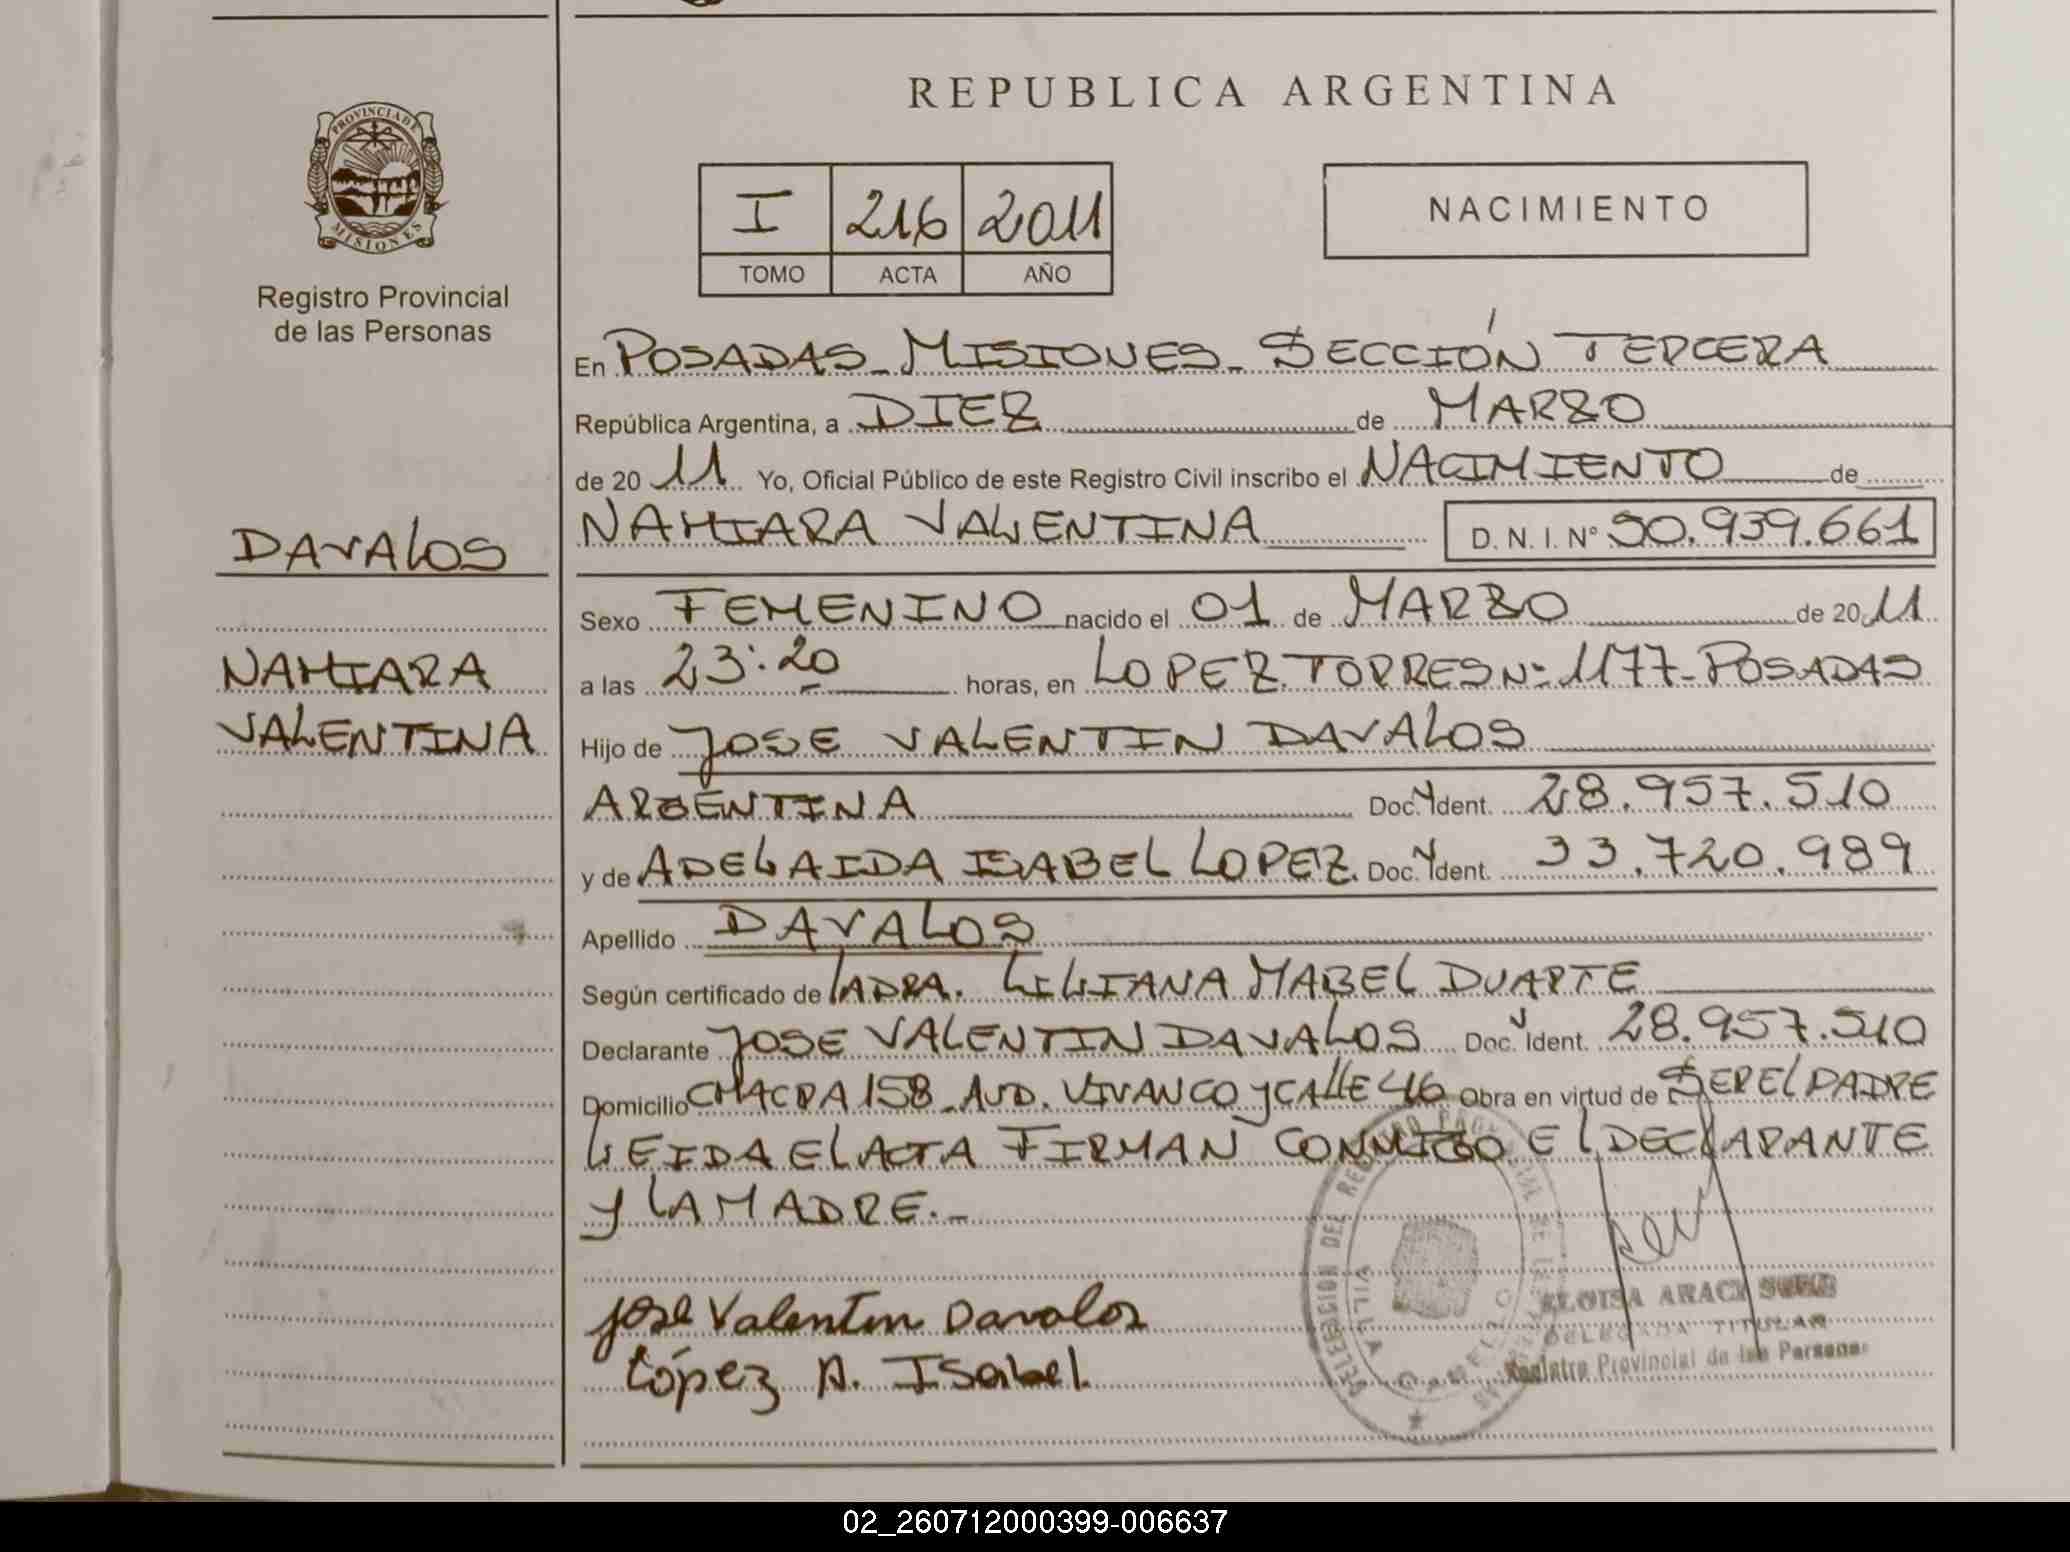 REPUBLICA ARGENTINA
PROVINCIA DE MISIONES
Registro Provincial
de las Personas
I 216 2011
TOMO ACTA AÑO
NACIMIENTO
En POSADAS - MISIONES - SECCIÓN TERCERA
República Argentina, a DIEZ de MARZO
de 20 11 Yo, Oficial Público de este Registro Civil inscribo el NACIMIENTO de
NAHIARA VALENTINA D. N. I. Nº 50.939.661
DAVALOS
NAHIARA
VALENTINA
Sexo FEMENINO nacido el 01 de MARZO de 20 11
a las 23:20 horas, en LOPEZ TORRES Nº 1177 - POSADAS
Hijo de JOSE VALENTIN DAVALOS
ARGENTINA Doc. Ident. 28.957.510
y de ADELAIDA ISABEL LOPEZ. Doc. Ident. 33.720.989
Apellido DAVALOS
Según certificado de LA DRA. LILIANA MABEL DUARTE
Declarante JOSE VALENTIN DAVALOS Doc. Ident. 28.957.510
Domicilio CHACRA 158 - AVD. VIVANCO y CALLE 46 Obra en virtud de SER EL PADRE
LEIDA EL ACTA FIRMAN CONMIGO El DECLARANTE
y LA MADRE. -
José Valentin Davalos
López A. Isabel.
DELEGACION DEL REGISTRO PROVINCIAL DE LAS PERSONAS
VILLA CABELLO
ELOISA ARACI
DELEGADA TITULAR
Registro Provincial de las Personas
02_260712000399-006637